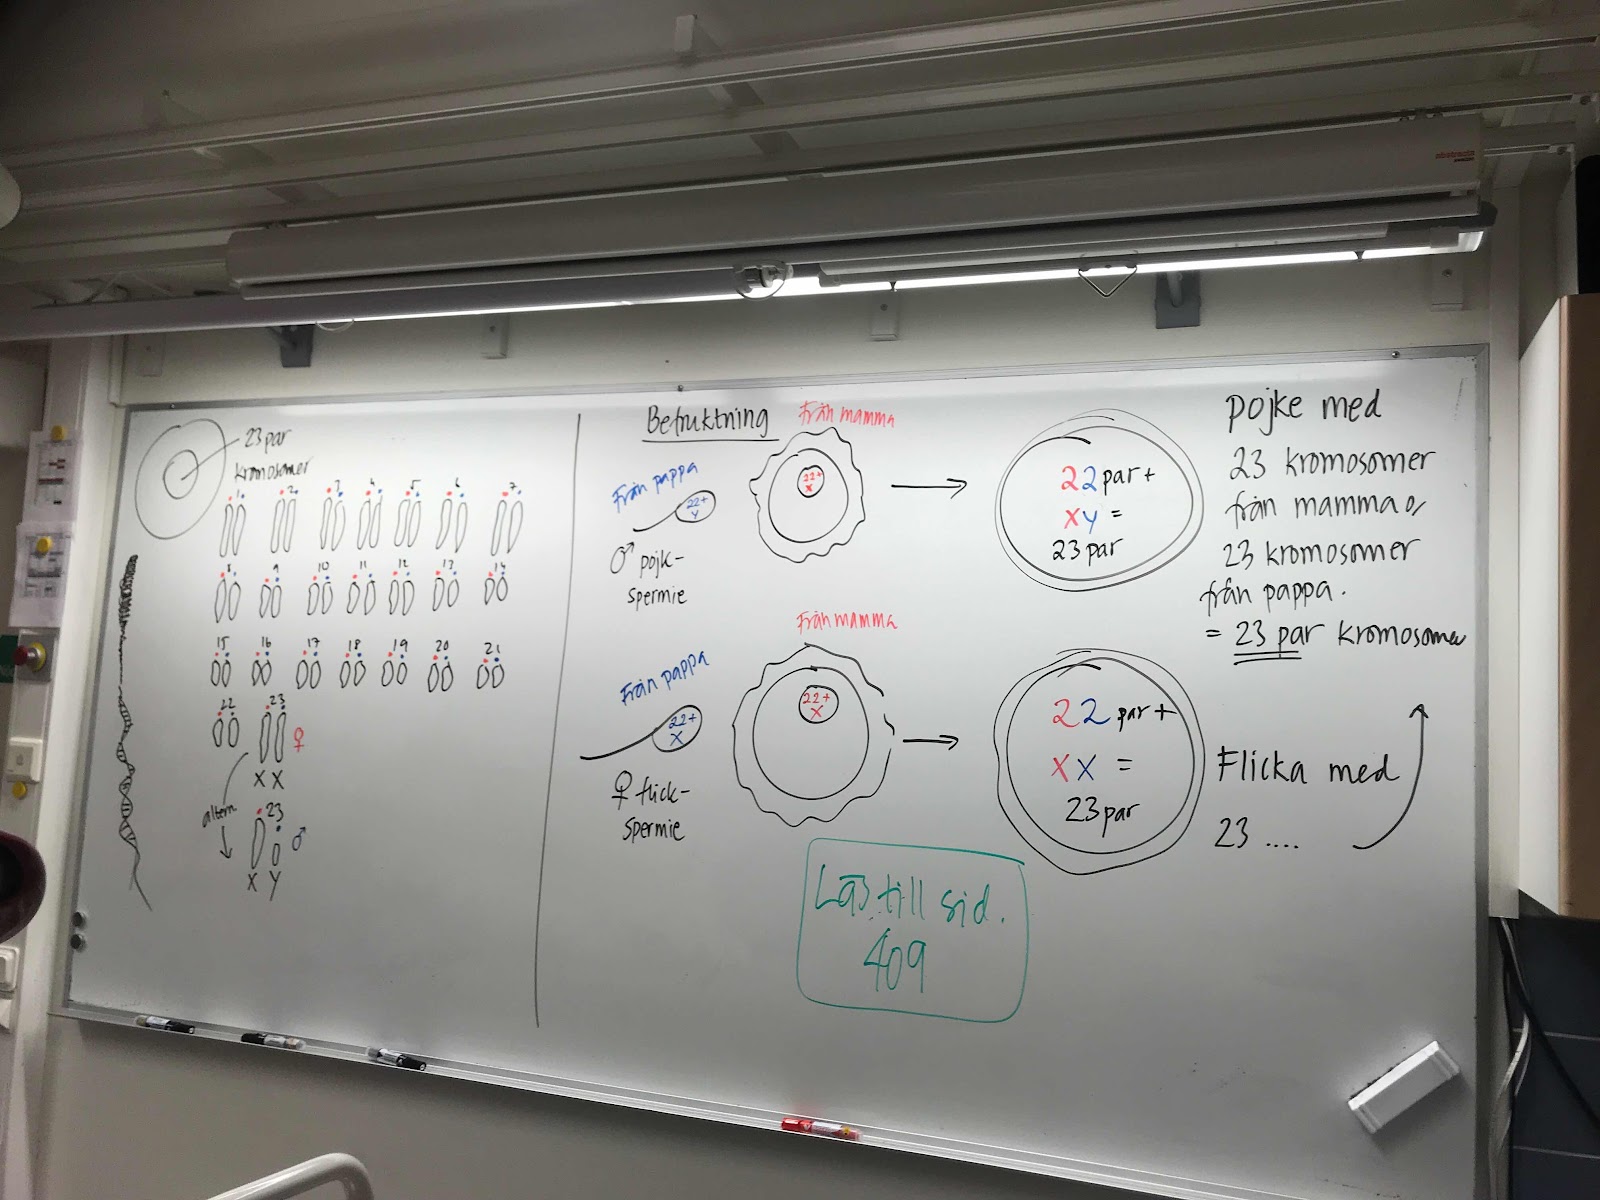 23 par
kromosomer
1 2 3 4 5 6 7
8 9 10 11 12 13 14
15 16 17 18 19 20 21
22 23
♀
X X
altern.
23
♂
X Y
Befruktning
Från mamma
Från pappa
22+
Y
22+
X
♂ pojk-
spermie
22 par +
XY =
23 par
pojke med
23 kromosomer
från mamma o/
23 kromosomer
från pappa.
= 23 par kromosomer
Från mamma
Från pappa
22+
X
22+
X
♀ flick-
spermie
22 par +
XX =
23 par
Flicka med
23 ....
Läs till sid.
409